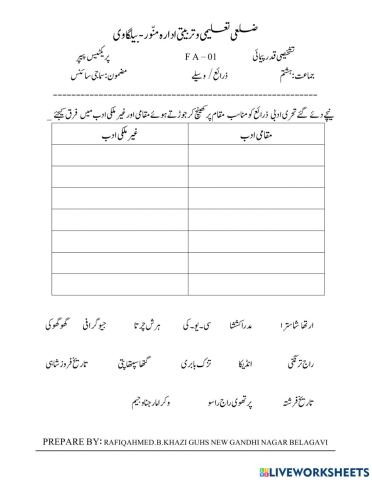 ضلعی تعلیمی و تربیتی ادارہ منّور - بیلگاوی
تشخیصی قدر پیمائی F A – 01 پریکٹیس پیپر
جماعت: ہشتم ذرائع / وسیلے مضمون: سماجی سائنس
نیچے دئے گئے تحریری ادبی ذرائع کو مناسب مقام پر کھینچ کر جوڑتے ہوئے مقامی اور غیر ملکی ادب میں فرق کیجئے
مقامی ادب غیر ملکی ادب
ارتھا شاسترا مدراکشثا سی-یو-کی ہرش چرتا جیو گرافی گھوگھوکی
راج ترنگنی انڈیکا تزک بابری گتھا سپتھاپتی تاریخ فروز شاہی
تاریخ فرشتہ پرتھوی راج راسو وکرامارجنا وجیم
PREPARE BY: RAFIQAHMED.B.KHAZI GUHS NEW GANDHI NAGAR BELAGAVI
LIVEWORKSHEETS